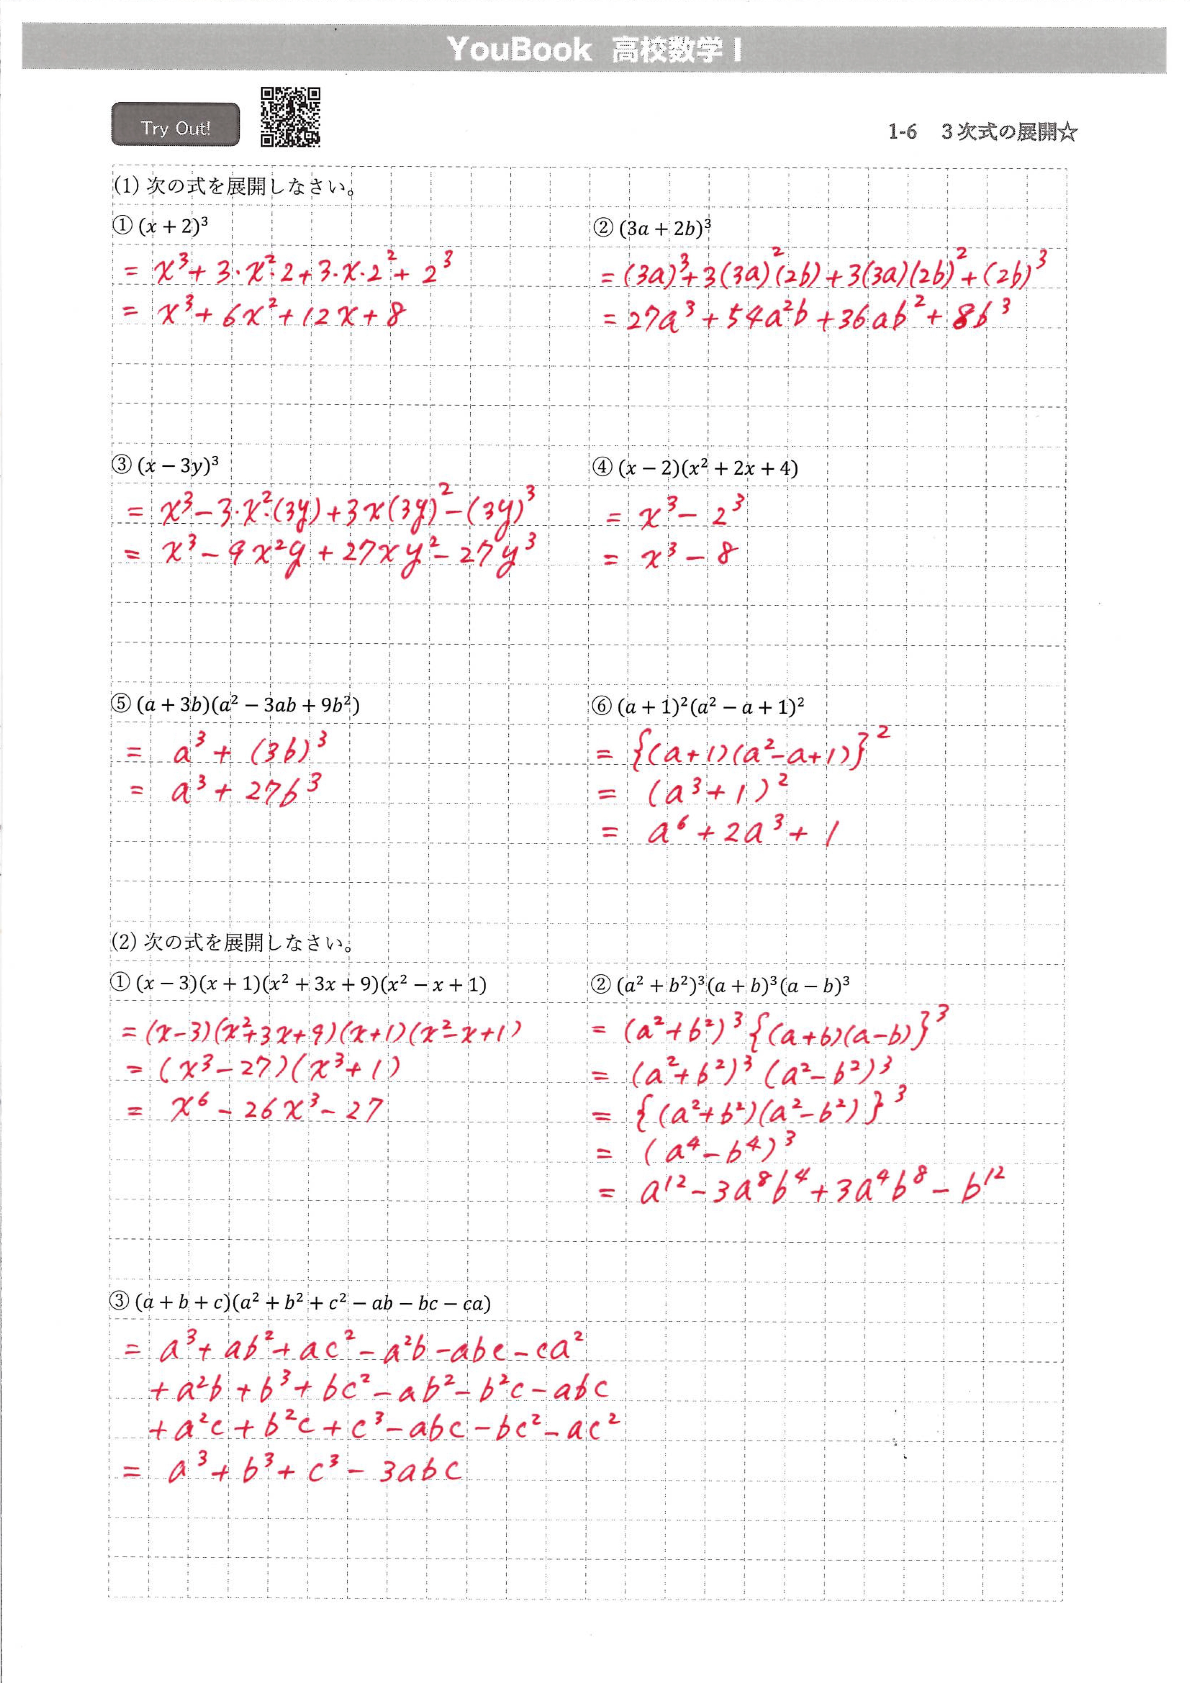 YouBook 高校数学 I
Try Out!
1-6 3次式の展開☆
(1) 次の式を展開しなさい。
① (x + 2)³
= x³ + 3·x²·2 + 3·x·2² + 2³
= x³ + 6x² + 12x + 8
② (3a + 2b)³
= (3a)³ + 3(3a)²(2b) + 3(3a)(2b)² + (2b)³
= 27a³ + 54a²b + 36ab² + 8b³
③ (x − 3y)³
= x³ − 3·x²·(3y) + 3x(3y)² − (3y)³
= x³ − 9x²y + 27xy² − 27y³
④ (x − 2)(x² + 2x + 4)
= x³ − 2³
= x³ − 8
⑤ (a + 3b)(a² − 3ab + 9b²)
= a³ + (3b)³
= a³ + 27b³
⑥ (a + 1)²(a² − a + 1)²
= {(a+1)(a²−a+1)}²
= (a³+1)²
= a⁶ + 2a³ + 1
(2) 次の式を展開しなさい。
① (x − 3)(x + 1)(x² + 3x + 9)(x² − x + 1)
= (x−3)(x²+3x+9)(x+1)(x²−x+1)
= (x³−27)(x³+1)
= x⁶ − 26x³ − 27
② (a² + b²)³(a + b)³(a − b)³
= (a²+b²)³{(a+b)(a−b)}³
= (a²+b²)³(a²−b²)³
= {(a²+b²)(a²−b²)}³
= (a⁴−b⁴)³
= a¹² − 3a⁸b⁴ + 3a⁴b⁸ − b¹²
③ (a + b + c)(a² + b² + c² − ab − bc − ca)
= a³ + ab² + ac² − a²b − abc − ca²
+ a²b + b³ + bc² − ab² − b²c − abc
+ a²c + b²c + c³ − abc − bc² − ac²
= a³ + b³ + c³ − 3abc